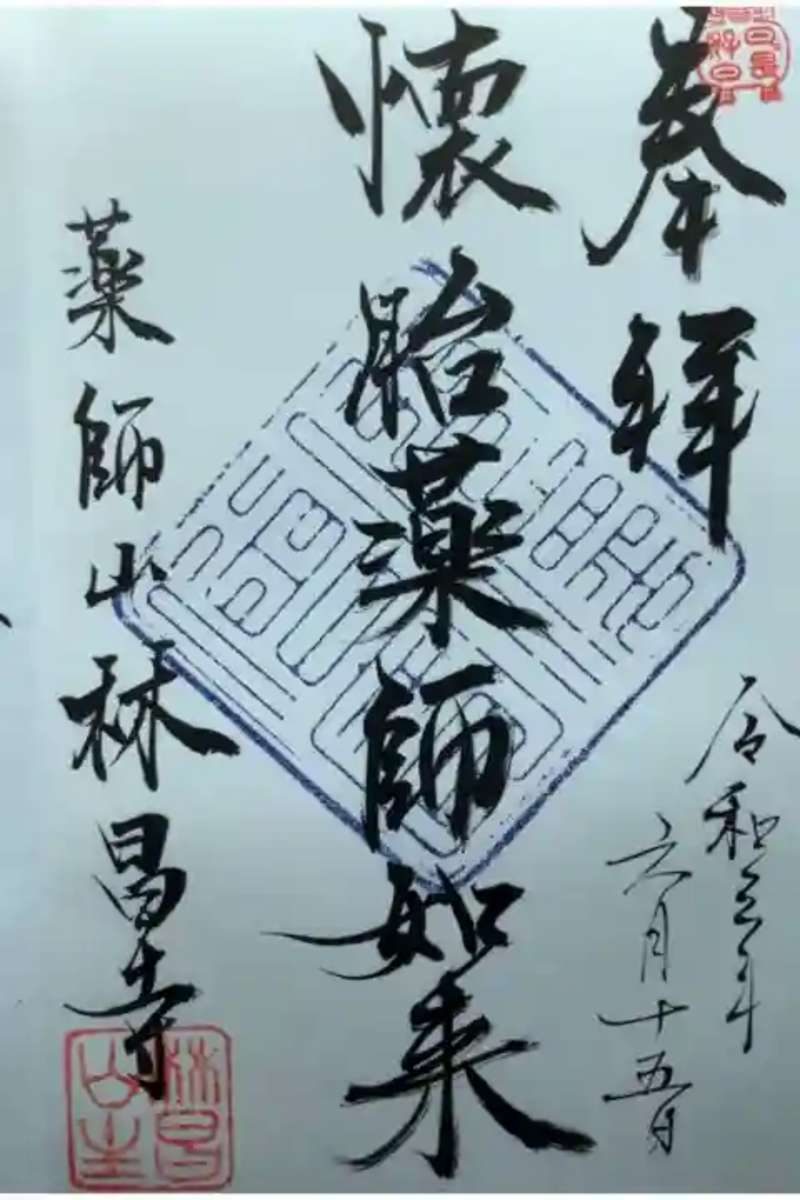 奉拝
令和三年
六月十五日
懐胎薬師如来
薬師山林昌寺
林昌